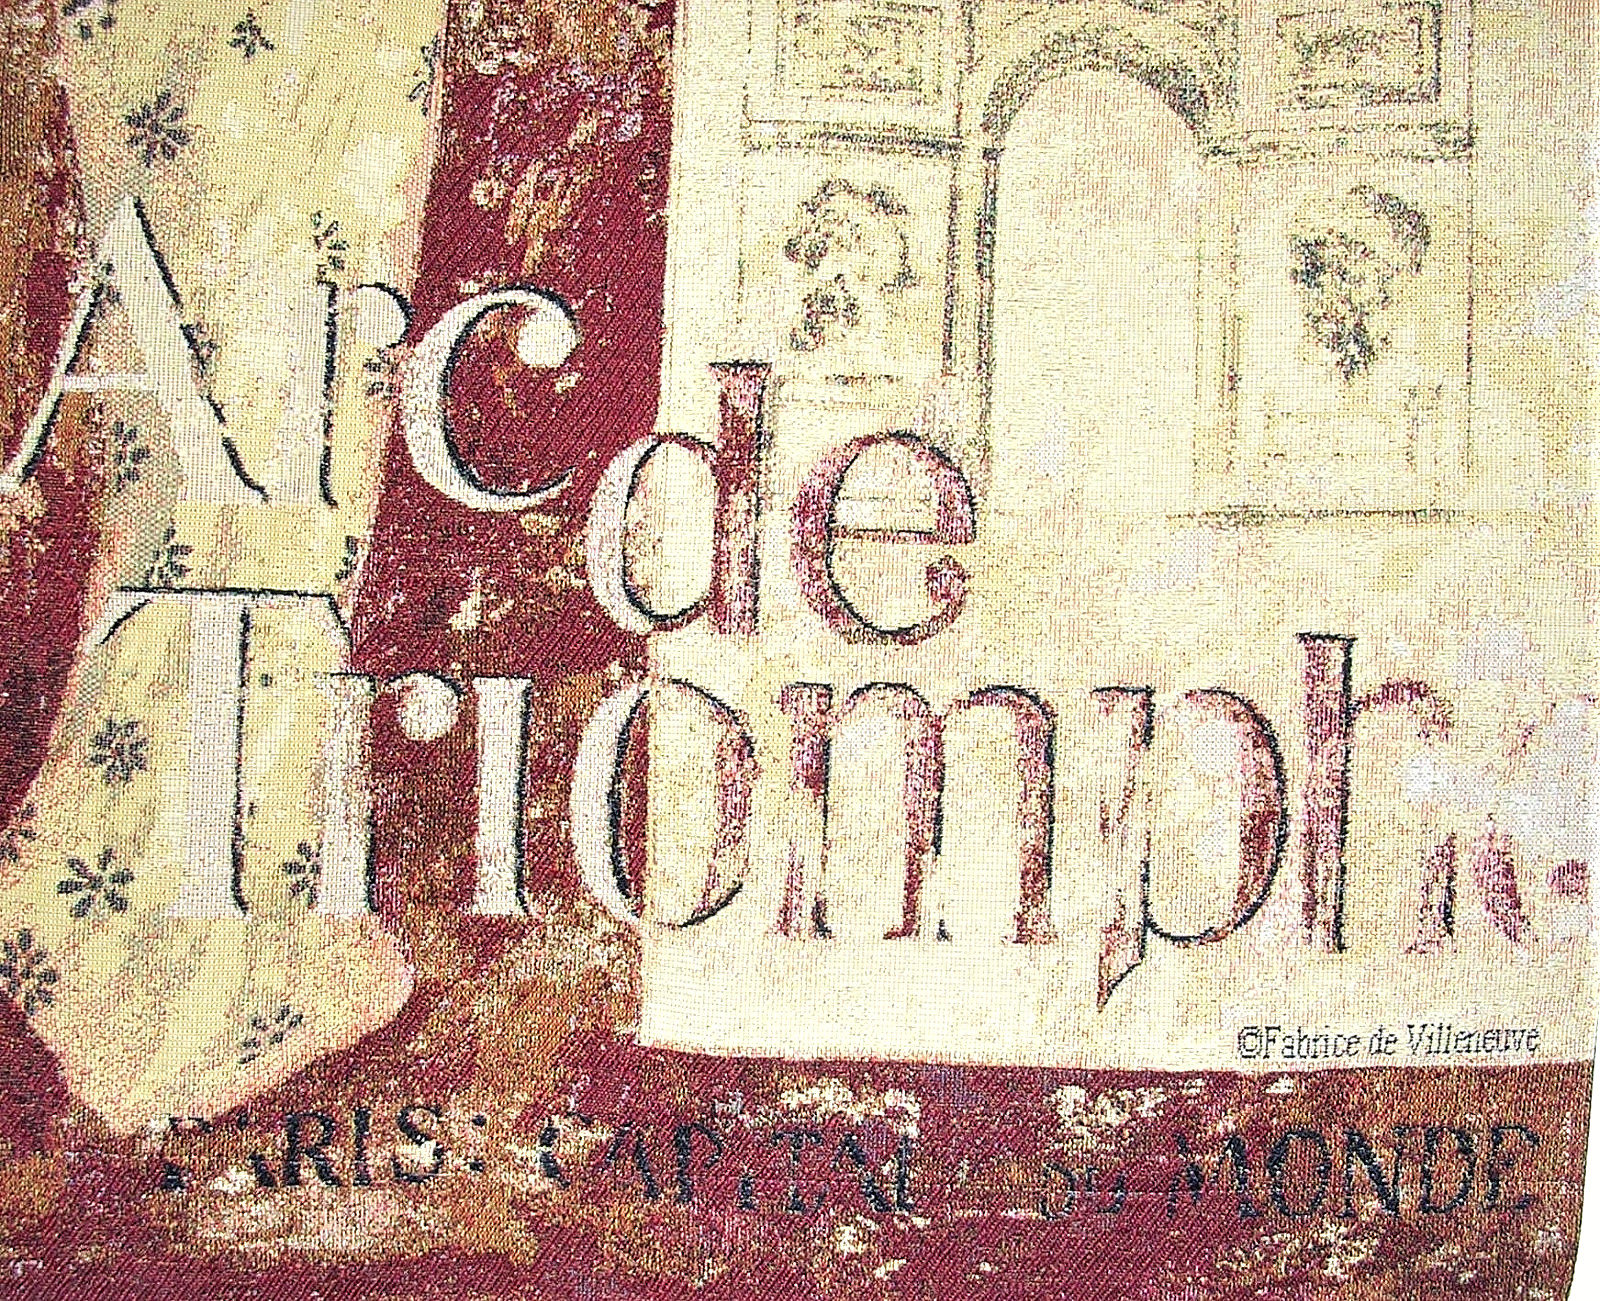 Arc
de
Triomphe
©Fabrice de Villeneuve
PARIS: CAPITAL DU MONDE